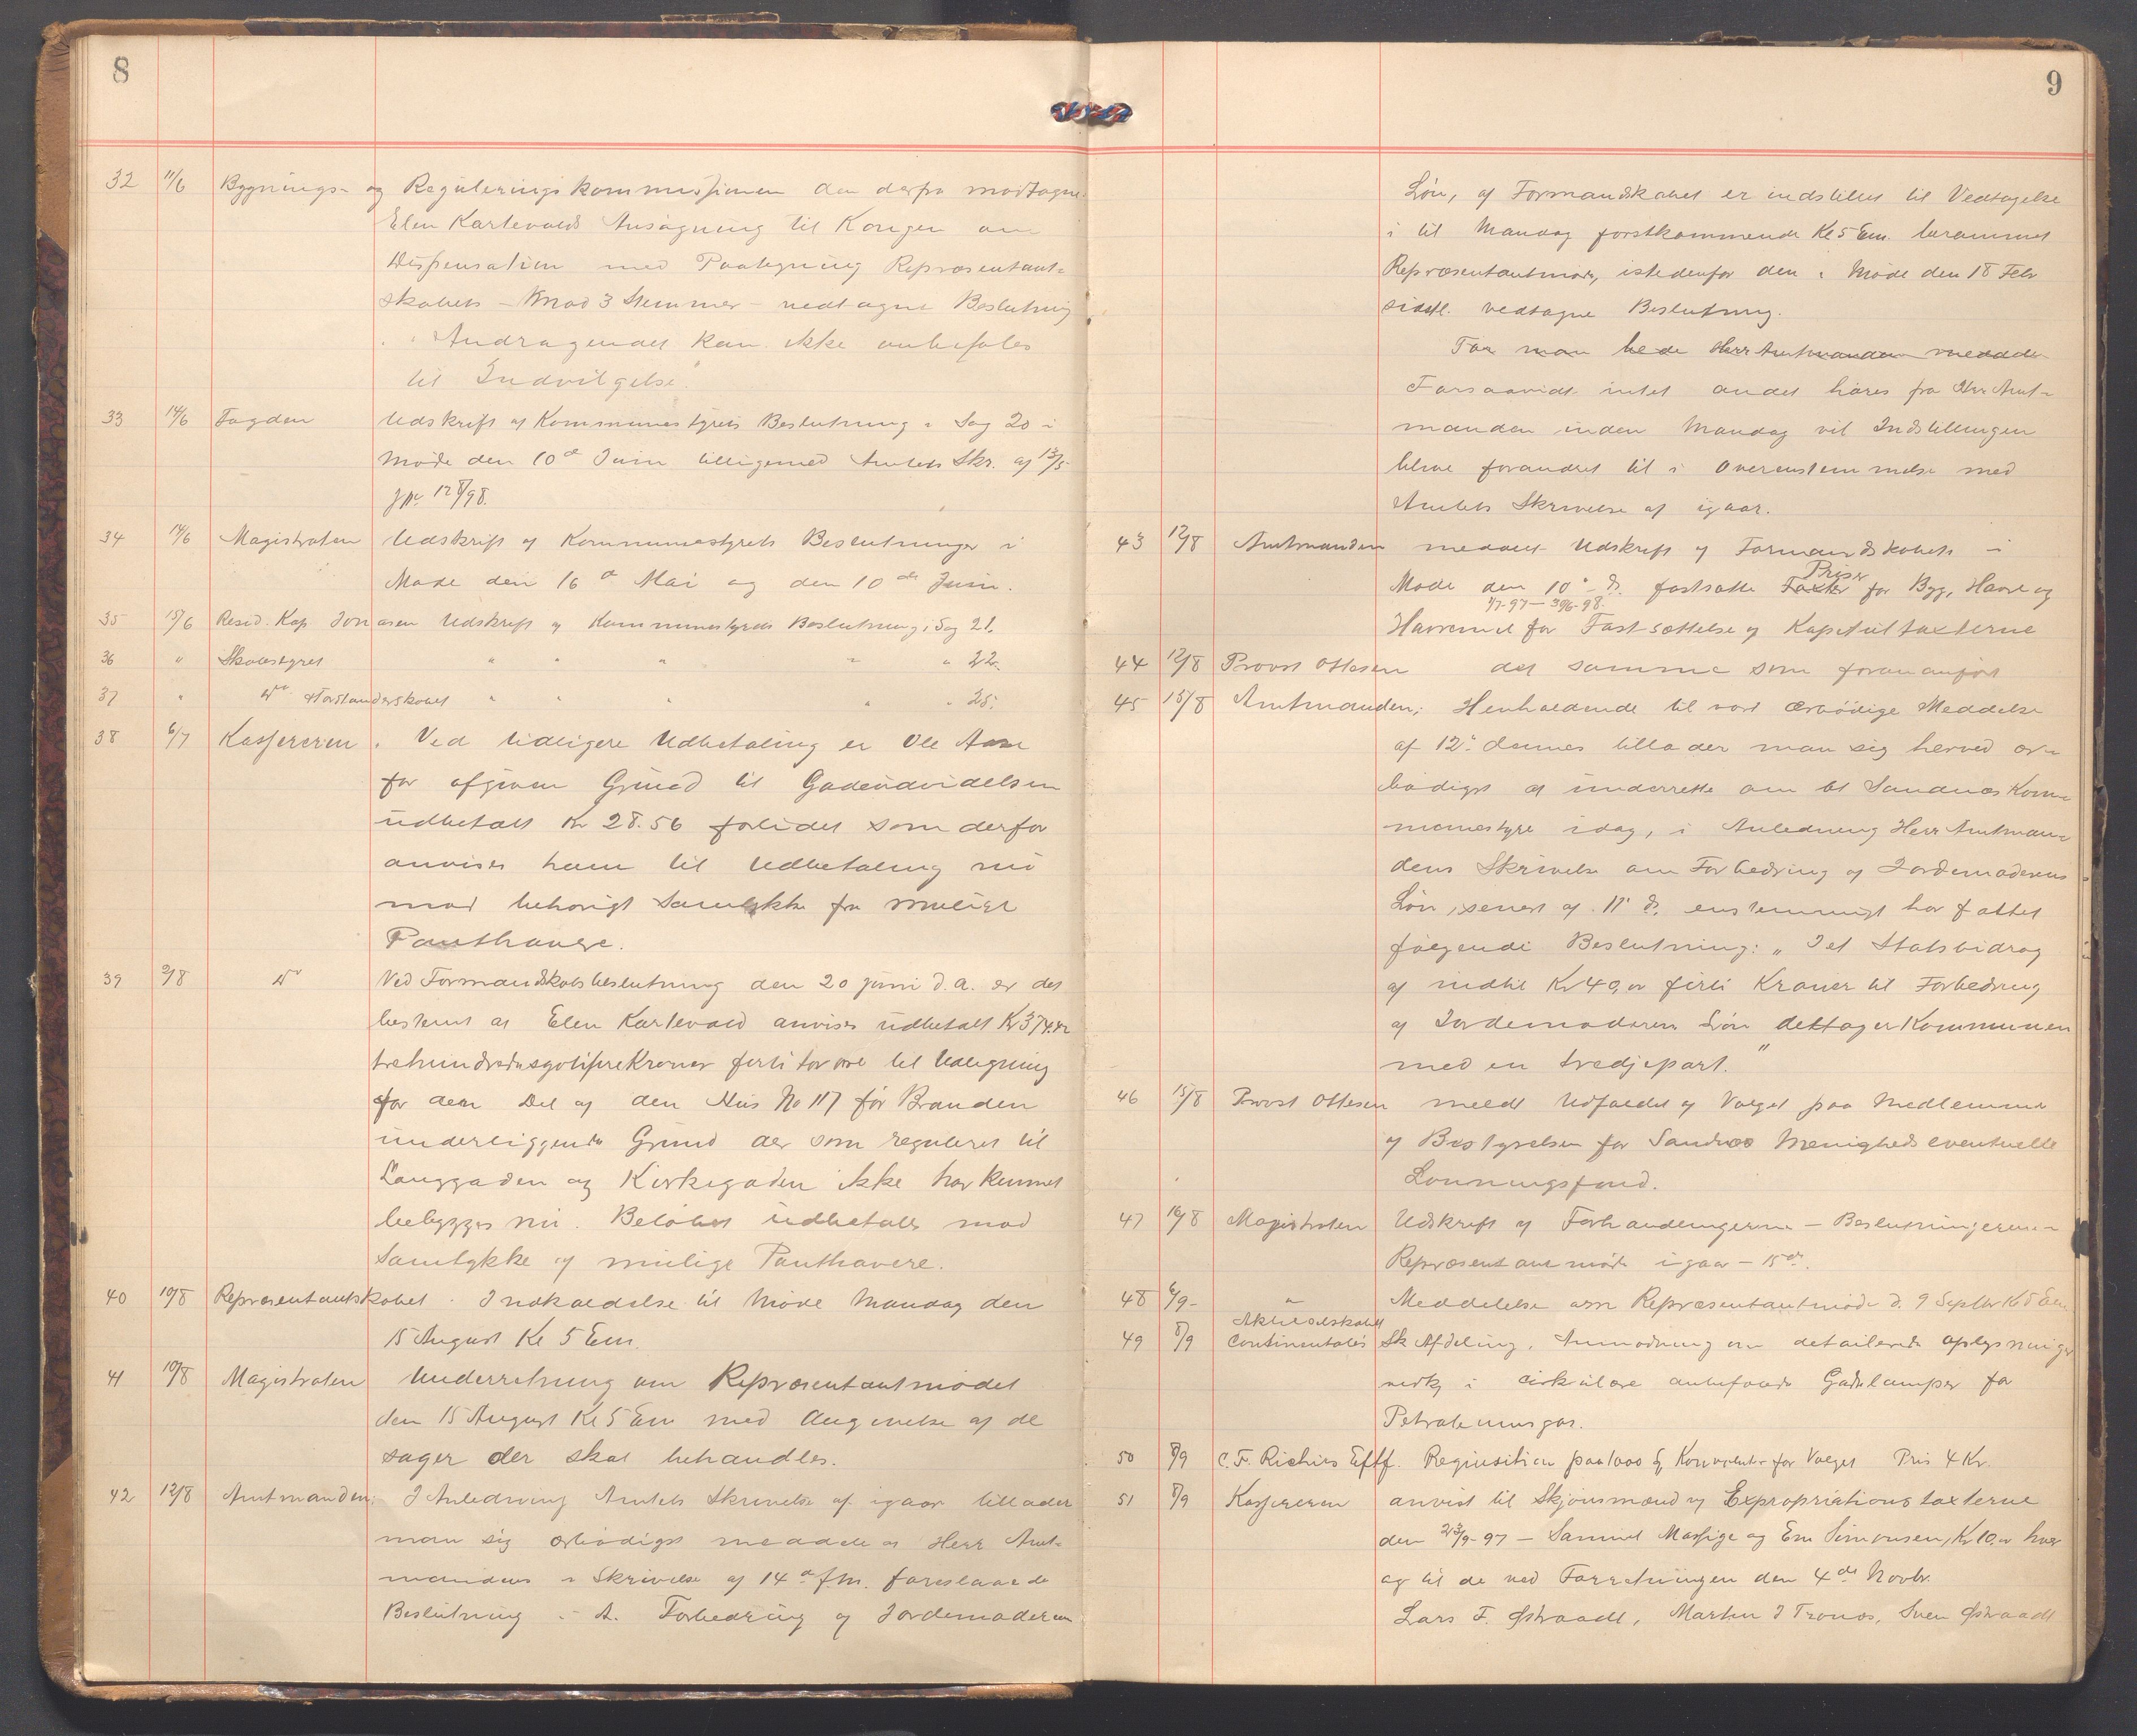 8
32 11/6 Bygnings- og Reguleringskommissionen den derfra modtagne
Elen Kartevolds Ansøgning til Kongen om
Dispensation med Paategning Repræsentant-
skabets - mod 3 Stemmer - vedtagne Beslutning
"Andragendet kan ikke anbefales
til Indvilgelse".
33 14/6 Fogden Udskrift af Kommunestyrets Beslutning i Sag 20 i
Møde den 10de Juni tilligemed Amtets Skr. af 13/5
J No 128/98.
34 14/6 Magistraten Udskrift af Kommunestyrets Beslutninger i
Møde den 16de Mai og den 10de Juni.
35 15/6 Resid. Kap Jonasen Udskrift af Kommunestyrets Beslutning i Sag 21.
36 " Skolestyret " " " " " 22.
37 " do Forstanderskabet " " " " " 25.
38 6/7 Kassereren. Ved tidligere Udbetaling er Ole Aase
for afgiven Grund til Gadeudvidelsen
udbetalt Kr 28.56 forlidet som derfor
anvises ham til Udbetaling nu
mod behørigt Samtykke fra muligt
Panthavere.
39 3/8 do Ved Formandskabsbeslutning den 20 juni d.a. er det
bestemt at Elen Kartevold anvises udbetalt Kr 374.42
trehundredesyttifire Kroner firti to øre til Udligning
for den Del af den Hus No 117 før Branden
underliggende Grund der som reguleret til
Langgaden og Kirkegaden ikke har kunnet
bebygges nu. Beløbet udbetales mod
Samtykke af mulige Panthavere.
40 10/8 Repræsentantskabet. Indkaldelse til Møde Mandag den
15 August Kl 5 Em.
41 10/8 Magistraten Underretning om Repræsentantmødet
den 15 August Kl 5 Em med Angivelse af de
sager der skal behandles.
42 12/8 Amtmanden: I Anledning Amtets Skrivelse af igaar tillader
man sig ærbødigst meddele at Herr Amt-
mandens i Skrivelse af 14de fm. foreslaaede
Beslutning i A. Forbedring af Jordemoderen
9
Løn, af Formandskabet er indstillet til Vedtagelse
i til Mandag førstkommende Kl 5 Em. berammet
Repræsentantmøde, istedenfor den i Møde den 18 Febr
sidstl. vedtagne Beslutning.
Tør man bede Herr Amtmanden meddele
Forsaavidt intet andet høres fra Herr Amt-
manden inden Mandag vil Indstillingen
blive forandret til i Overenstemmelse med
Amtets Skrivelse af igaar.
43 12/8 Amtmanden meddelt Udskrift af Formandskabets i
Møde den 10de ds. fastsatte Taxter Priser for Byg, Havre og
1/7-97 - 30/6-98.
Havremel for Fastsættelse af Kapitultaxterne
44 12/8 Provst Ottesen det samme som forananført
45 15/8 Amtmanden; Henholdende til vort ærbødige Meddelse
af 12te dennes tillader man sig herved ær-
bødigst at underrette om at Sandnæs Kom-
munestyre idag, i Anledning Herr Amtman-
dens Skrivelse om Forbedring af Jordemoderens
Løn, senest af 11te ds, enstemmigt har fattet
følgende Beslutning: "I et Statsbidrag
af indtil Kr 40,00 firti Kroner til Forbedring
af Jordemoderens Løn deltager Kommunen
med en tredjepart."
46 15/8 Provst Ottesen meldt Udfaldet af Valget paa Medlemmer
af Bestyrelsen for Sandnæs Menigheds eventuelle
Lønningsfond.
47 16/8 Magistraten Udskrift af Forhandlingerne - Beslutningerne -
Repræsentantmøde igaar - 15de.
48 6/9 - " Meddelelse om Repræsentantmøde d. 9 Septbr Kl 5 Em.
Aktieselskabet
49 8/9 Continentales Sk Afdeling. Anmodning om detailerede oplysninger
vedk i cirkulære anbefalede Gadelamper for
Petroleumsgas.
50 8/9 C. F. Richies Eftf. Reqiusition paa 1000 Konvolutter for Valget Pris 4 Kr.
51 8/9 Kassereren anvist til Skjønsmænd af Expropriationstaxterne
den 23/9-97 - Samuel Massige og Em Simonsen, Kr 10,00 hver
og til de ved Forretningen den 4de Novbr.
Lars F. Østraadt, Martin I Tronæs, Sven Østraadt